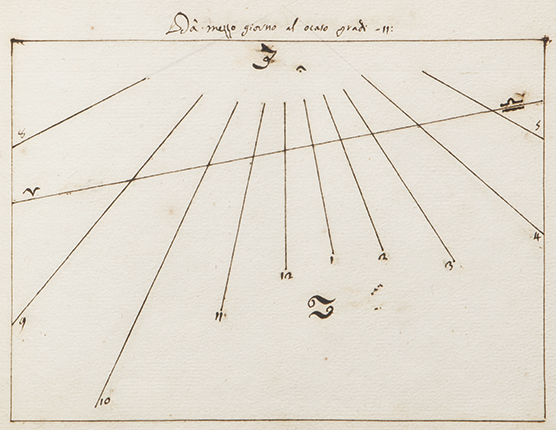 Dà mezzo giorno al ocaso gradi -11:
♑
♎
8
5
♈
4
3
2
1
12
11
9
10
♋